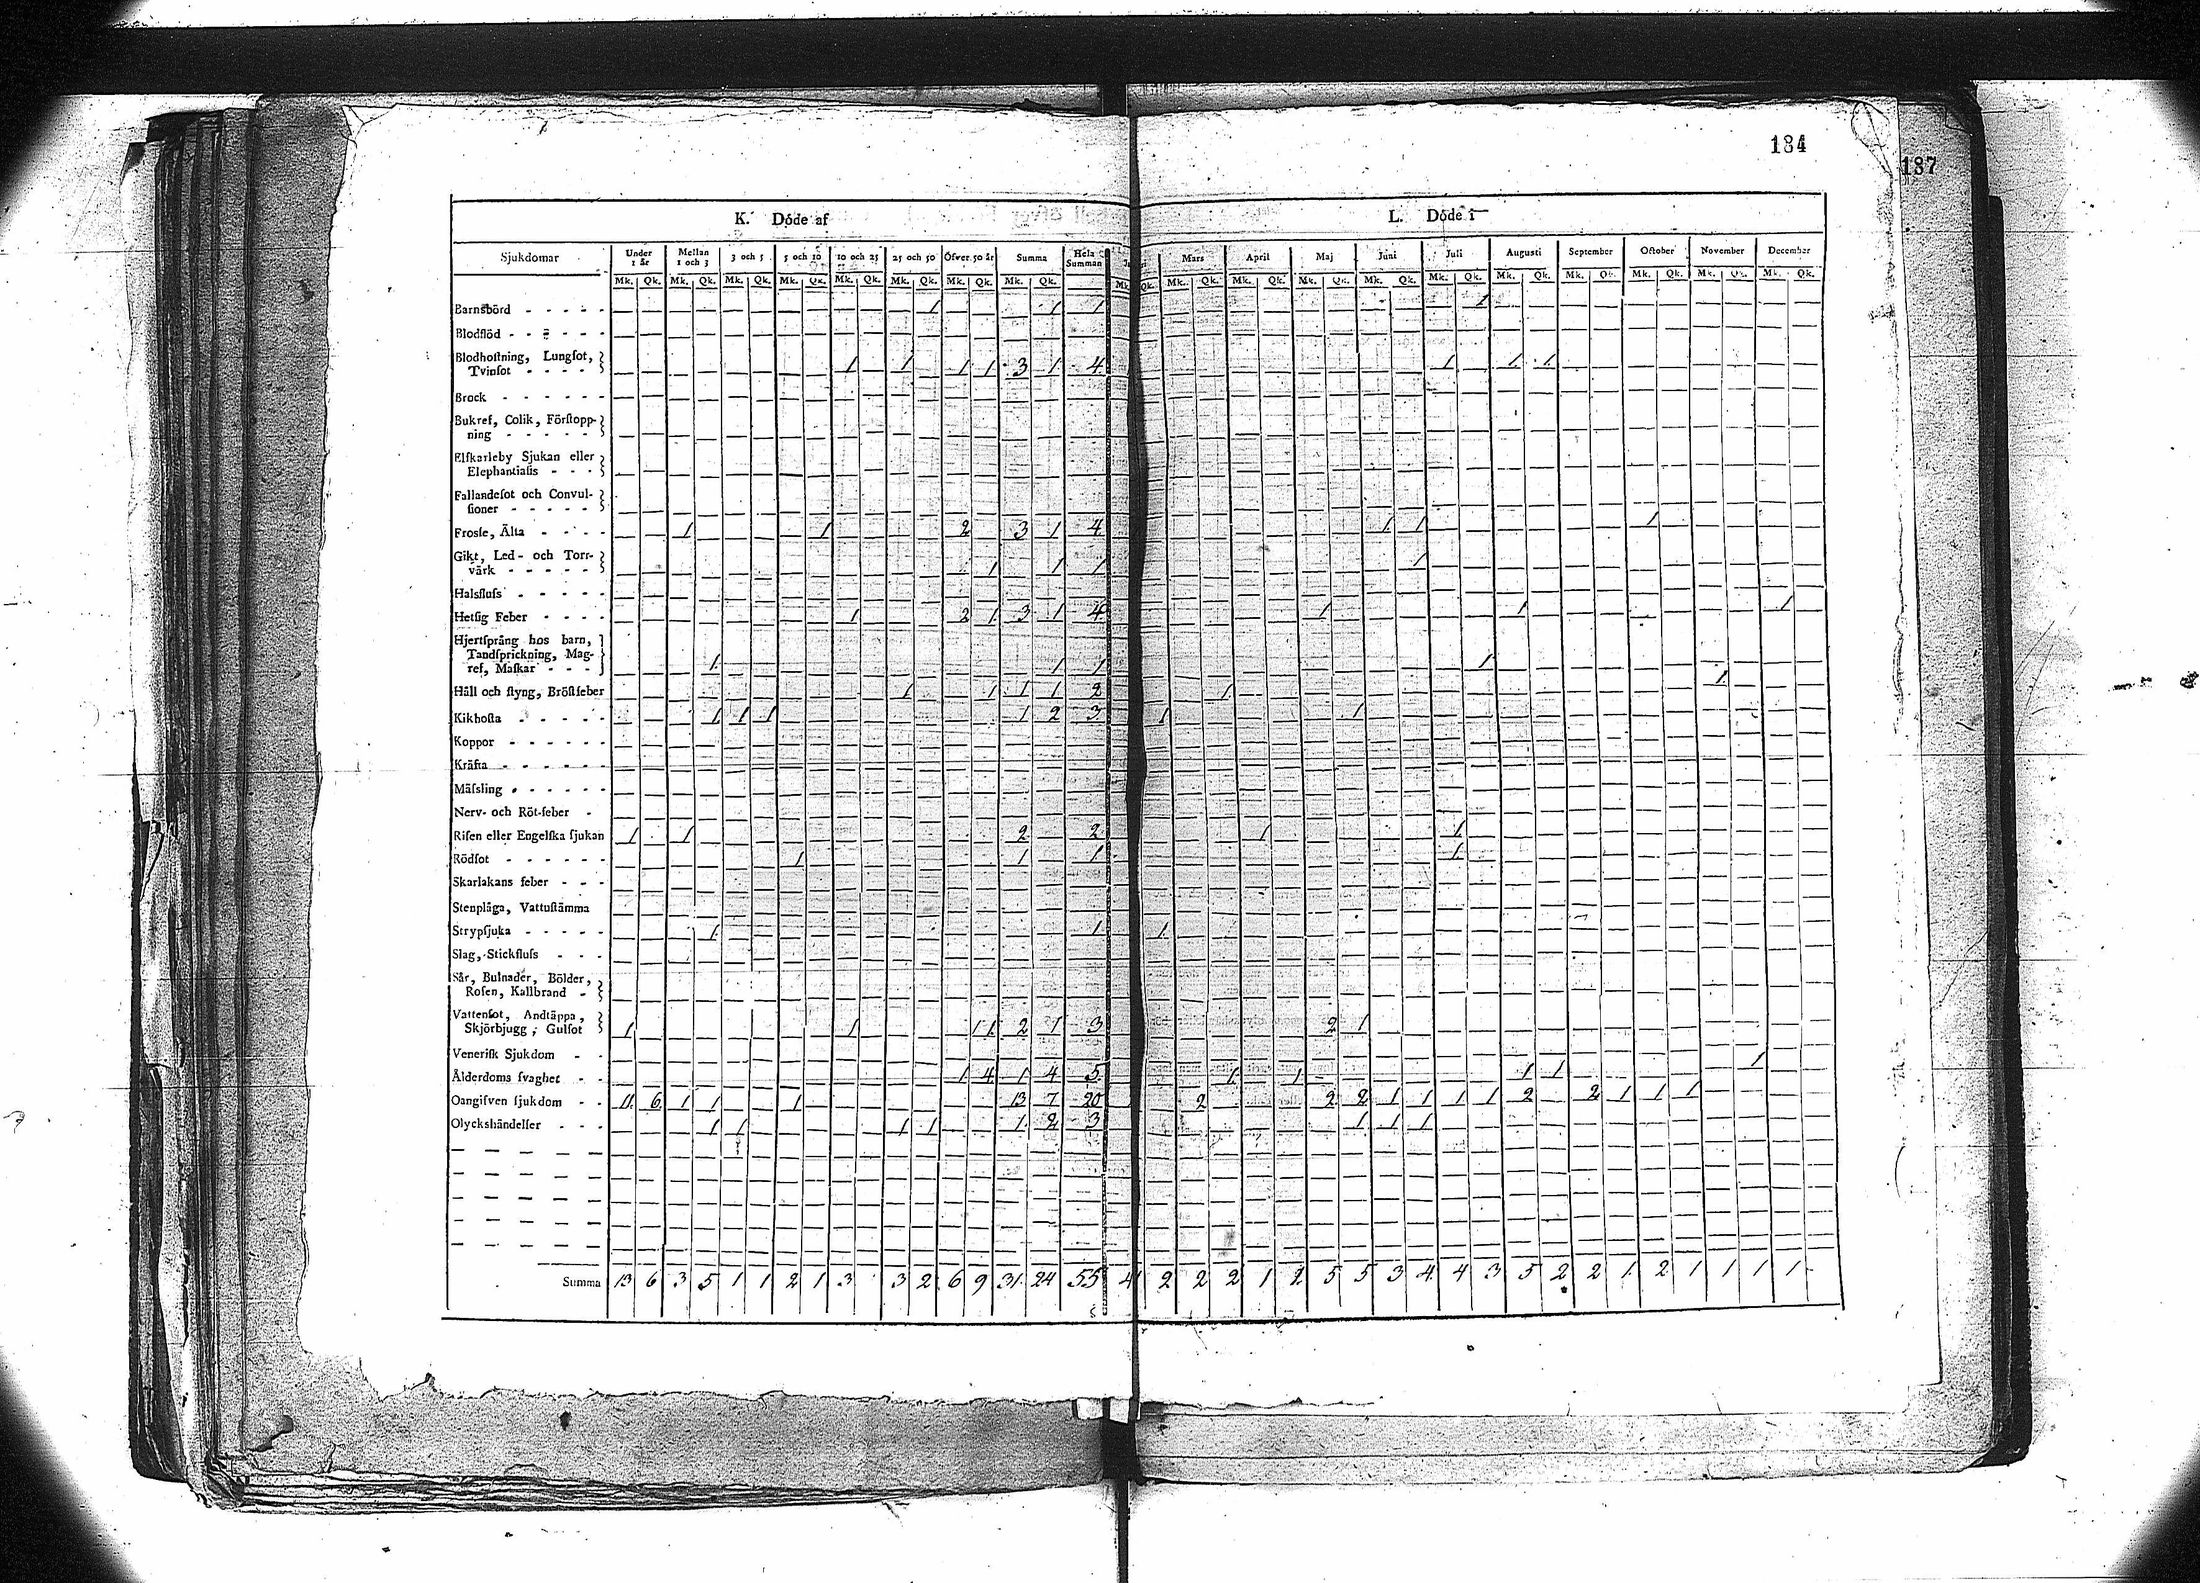 184
187
K. Döde af
L. Döde i
Sjukdomar Under 1 år Mellan 1 och 3 3 och 5 5 och 10 10 och 25 25 och 50 Öfver 50 år Summa Hela Summan Mars April Maj Juni Juli Augusti September October November December
Mk. Qk. Mk. Qk. Mk. Qk. Mk. Qk. Mk. Qk. Mk. Qk. Mk. Qk. Mk. Qk. Mk. Qk. Mk. Qk. Mk. Qk. Mk. Qk. Mk. Qk. Mk. Qk. Mk. Qk. Mk. Qk. Mk. Qk. Mk. Qk. Mk. Qk.
Barnsbörd 1 1 1 1
Blodflöd
Blodhoſtning, Lungſot,
Tvinſot 1 1 1 1 3 1 4 1 1 1
Brock
Bukref, Colik, Förſtopp-
ning
Elſkarleby Sjukan eller
Elephantiaſis
Fallandeſot och Convul-
ſioner
Frosſe, Älta 1 1 2 3 1 4 1 1 1
Gikt, Led- och Torr-
värk 1 1 1 1
Halsfluſs
Hetſig Feber 1 2 1 3 1 4 1 1 1
Hjertſprång hos barn,
Tandſprickning, Mag-
ref, Maſkar 1 1 1 1
Håll och ſtyng, Bröſtfeber 1 1 1 1 2 1 1
Kikhoſta 1 1 1 1 2 3 1 1
Koppor
Kräfta
Mäſsling
Nerv- och Röt-feber
Riſen eller Engelſka ſjukan 1 1 2 2 1 1
Rödſot 1 1 1 1
Skarlakans feber
Stenplåga, Vattuſtämma
Strypſjuka 1 1 1
Slag, Stickfluſs
Sår, Bulnader, Bölder,
Roſen, Kallbrand
Vattenſot, Andtäppa,
Skjörbjugg, Gulſot 1 1 1 1 2 1 3 2 1
Veneriſk Sjukdom
Ålderdoms ſvaghet 1 4 1 4 5 1 1 1 1 1
Oangifven ſjukdom 11 6 1 1 1 13 7 20 2 2 2 1 1 1 1 2 2 1 1 1
Olyckshändelſer 1 1 1 1 1 2 3 1 1 1
Summa 13 6 3 5 1 1 2 1 3 3 2 6 9 31 24 55 4 2 2 2 1 2 5 5 3 4 4 3 5 2 2 1 2 1 1 1 1